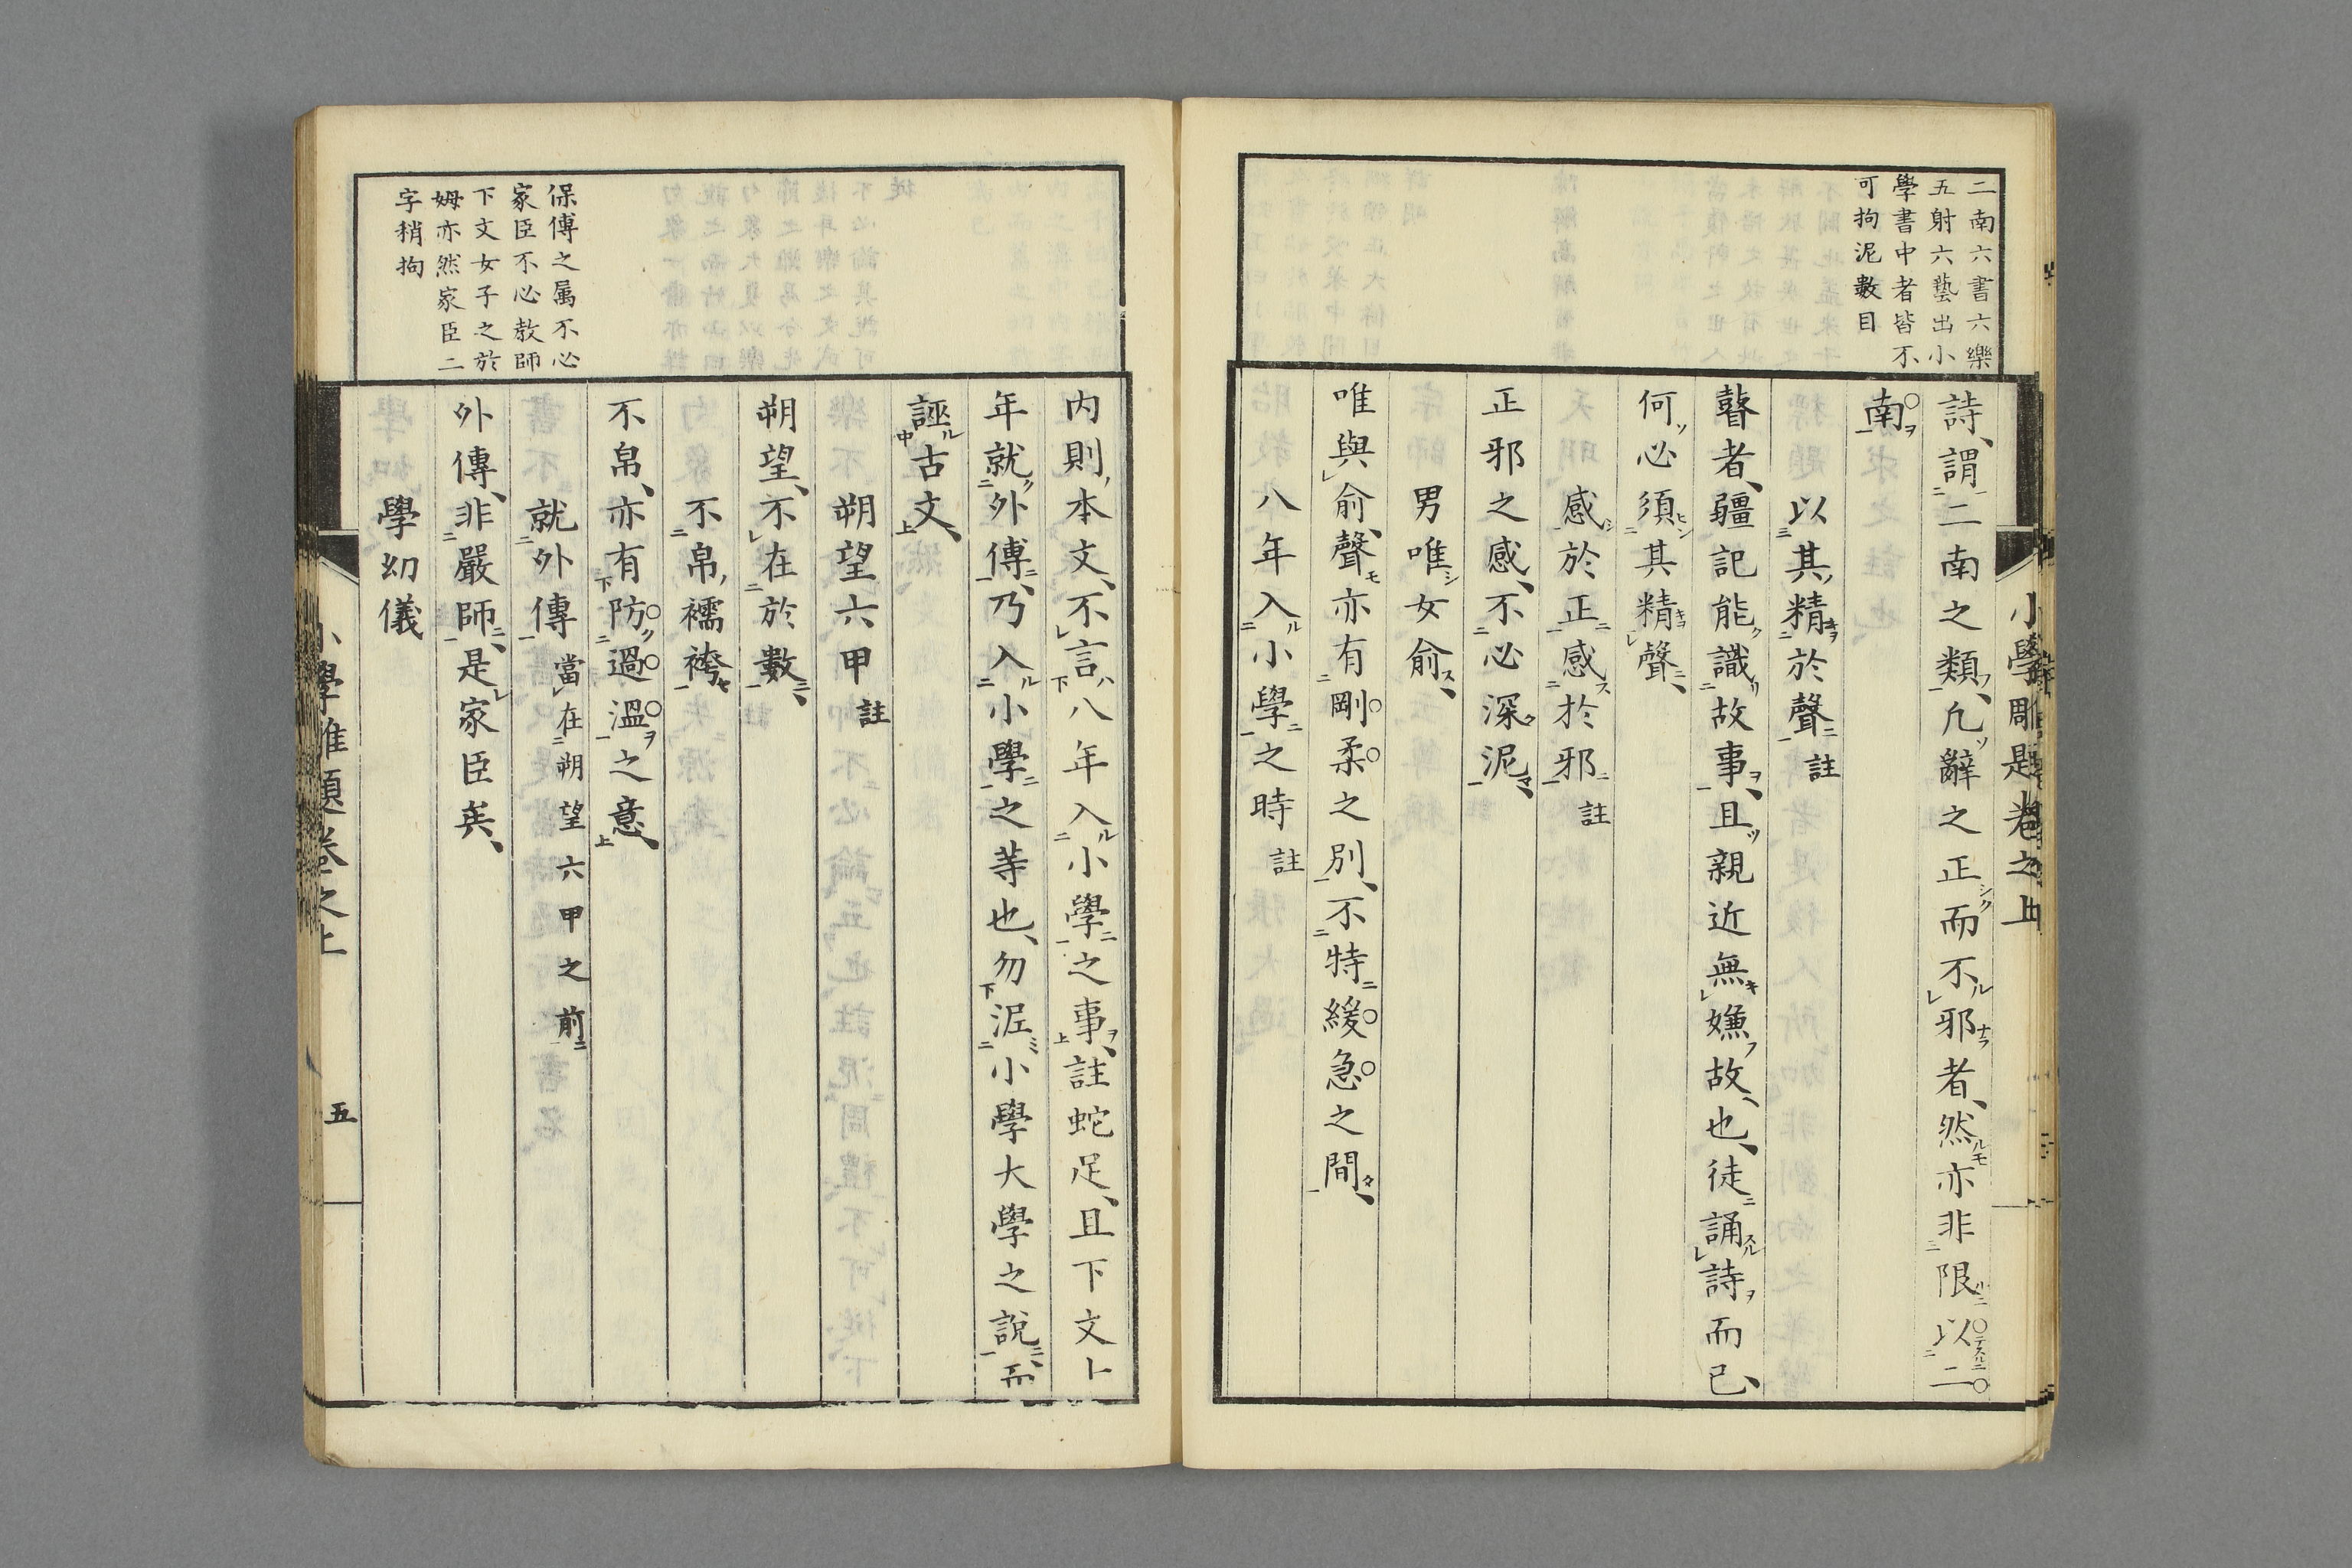 二南六書六樂
五射六藝出小
學書中者皆不
可拘泥數目
小學雕題卷之上
詩、謂二南之類、凡辭之正而不邪者、然亦非限以二
南
以其精於聲 註
瞽者、疆記能識故事、且親近無嫌故、也、徒誦詩而已、
何必須其精聲、
感於正感於邪 註
正邪之感、不必深泥、
男唯女俞、
唯與俞、聲亦有剛柔之別、不特緩急之間、
八年入小學之時 註
保傅之属不必
家臣不必教師
下文女子之於
姆亦然家臣二
字稍拘
內則本文、不言八年入小學之事、註蛇足、且下文卜
年就外傅、乃入小學之等也、勿泥小學大學之說、而
誣古文、
朔望六甲 註
朔望、不在於數、
不帛襦袴
不帛、亦有防過溫之意、
就外傅 當在朔望六甲之前
外傅、非嚴師、是家臣矣、
學幼儀
小學雕題卷之上
五